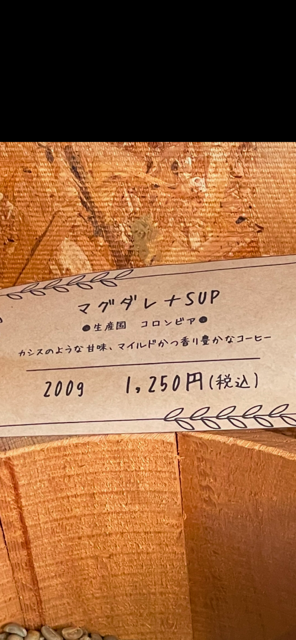 マグダレナSUP
●生産国 コロンビア●
カシスのような甘味、マイルドかつ香り豊かなコーヒー
200g 1,250円(税込)